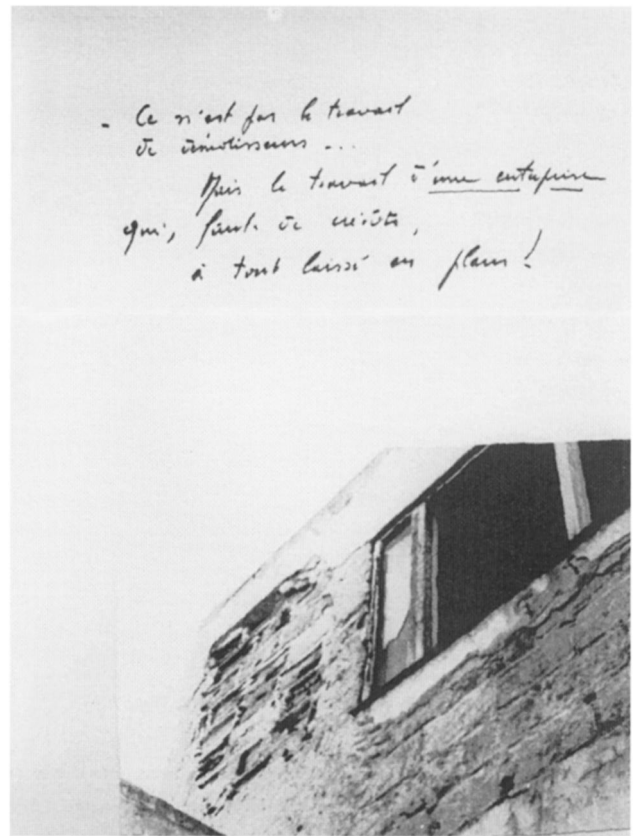 - Ce n'est pas le travail
de démolisseurs ...
Mais le travail d'une entreprise
qui, faute de crédits,
a tout laissé en plan !